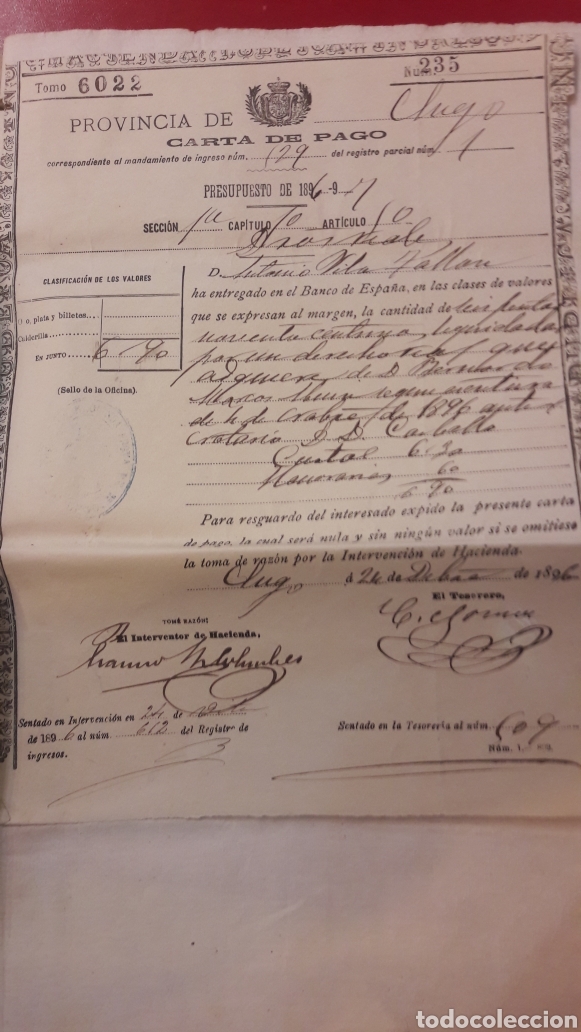 Tomo 6022
Núm. 235
PROVINCIA DE Lugo
CARTA DE PAGO
correspondiente al mandamiento de ingreso núm. 179 del registro parcial núm. 1
PRESUPUESTO DE 1896-97
SECCIÓN CAPÍTULO ARTÍCULO
D. Antonio Vila
CLASIFICACIÓN DE LOS VALORES
plata y billetes.
Calderilla
EN JUNTO 6 90
(Sello de la Oficina).
ha entregado en el Banco de España, en las clases de valores
que se expresan al margen, la cantidad de seis pesetas
noventa céntimos liquidadas
por un derecho real que
adquiere de D. Bernardo
según escritura
de 4 de Octubre de 1896 ante
D. D. Carballo
Cuotas 6 30
Honorarios 60
6 90
Para resguardo del interesado expido la presente carta
de pago, la cual será nula y sin ningún valor si se omitiese
la toma de razón por la Intervención de Hacienda.
Lugo á 24 de Dbre de 1896
TOMÉ RAZÓN:
El Interventor de Hacienda,
El Tesorero,
Sentado en Intervención en 24 de
de 1896 al núm. 612 del Registro de
ingresos.
Sentado en la Tesorería al núm. 609
Núm. 1.
todocoleccion